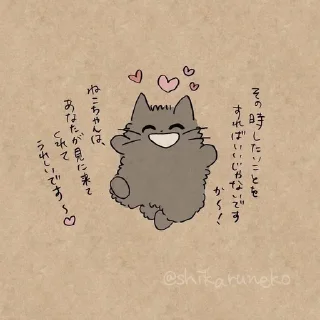 その時したいことを
すればいいじゃないです
か〜!
ねこちゃんは、
あなたが見に来て
くれて
うれしいです〜♡
@shikaruneko